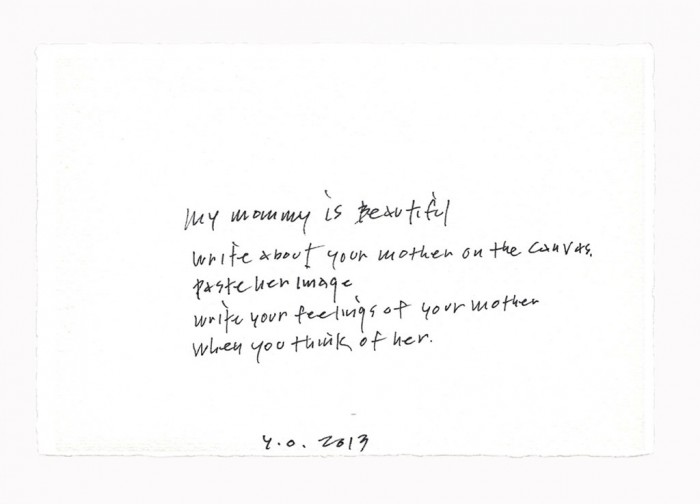 my mommy is beautiful
write about your mother on the canvas.
paste her image
write your feelings of your mother
when you think of her.
y.o. 2013